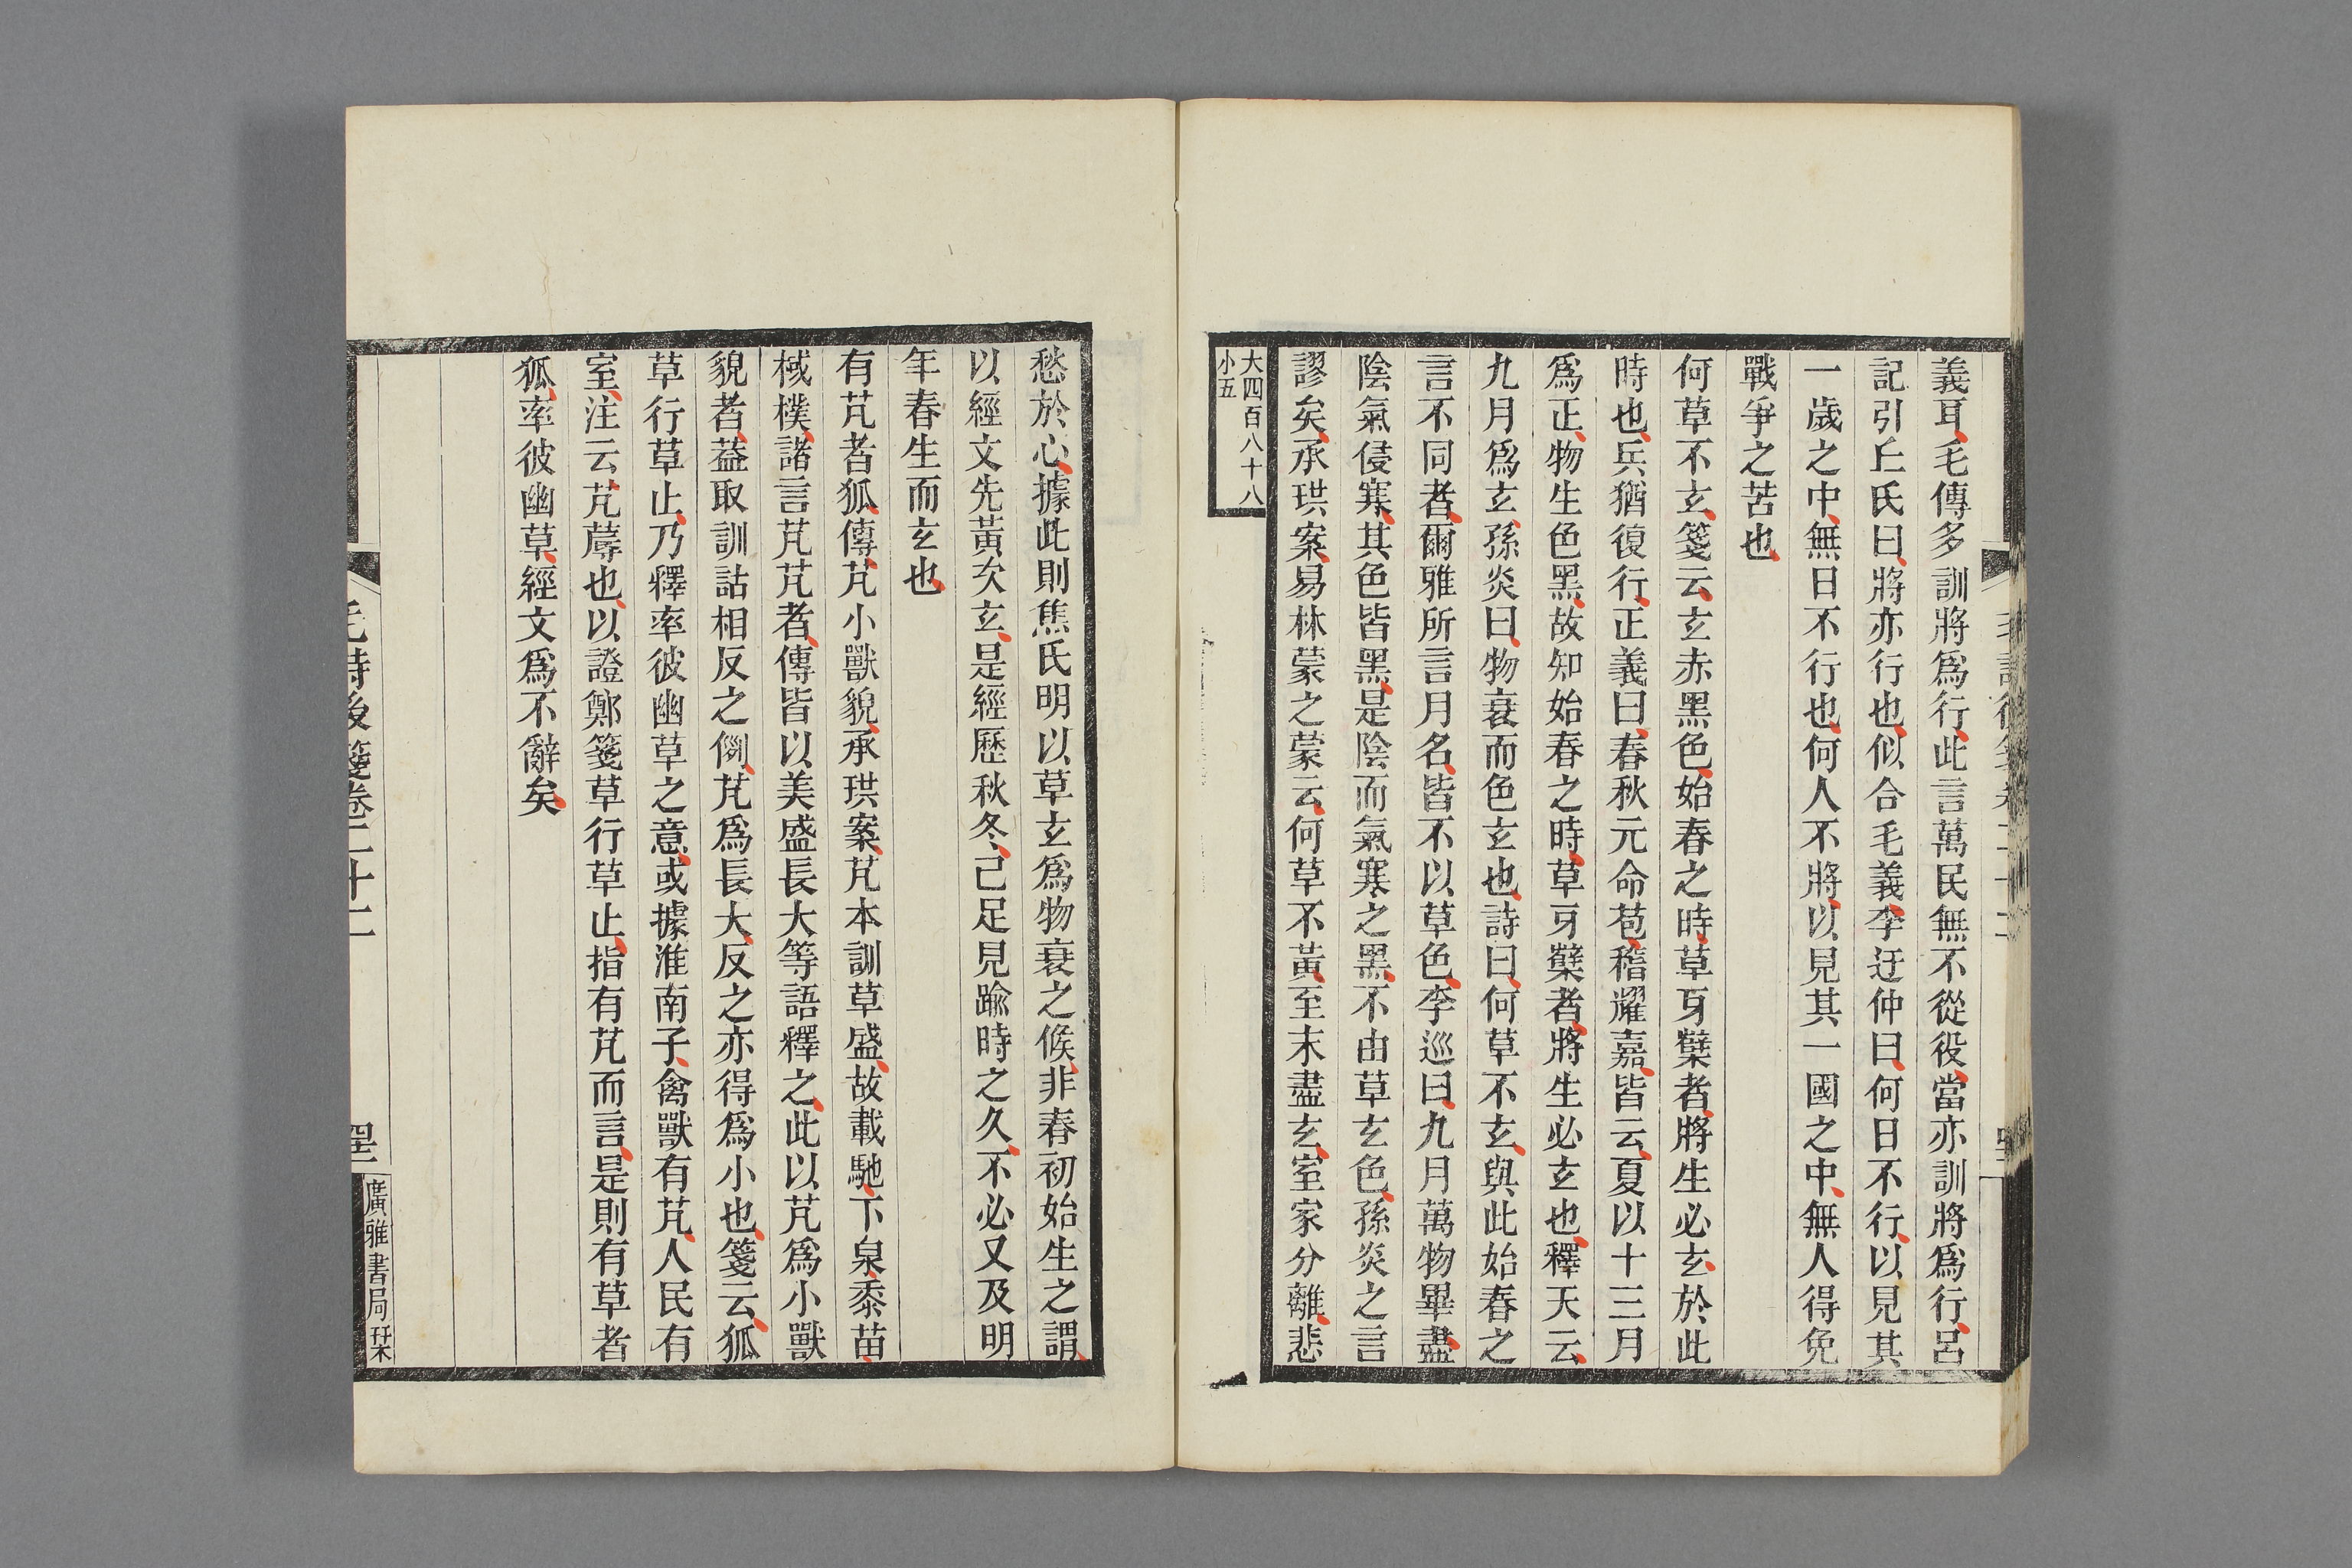 義耳毛傳多訓將爲行此言萬民無不從役當亦訓將爲行呂
記引丘氏曰將亦行也似合毛義李迂仲曰何日不行以見其
一歲之中無日不行也何人不將以見其一國之中無人得免
戰爭之苦也
何草不玄箋云玄赤黑色始春之時草牙櫱者將生必玄於此
時也兵猶復行正義曰春秋元命苞稽耀嘉皆云夏以十三月
爲正物生色黑故知始春之時草牙櫱者將生必玄也釋天云
九月爲玄孫炎曰物衰而色玄也詩曰何草不玄與此始春之
言不同者爾雅所言月名皆不以草色李巡曰九月萬物畢盡
陰氣侵寒其色皆黑是陰而氣寒之黑不由草玄色孫炎之言
謬矣承珙案易林蒙之蒙云何草不黃至末盡玄室家分離悲
大四百八十八
小五
愁於心據此則焦氏明以草玄爲物衰之候非春初始生之謂
以經文先黃次玄是經歷秋冬已足見踰時之久不必又及明
年春生而玄也
有芃者狐傳芃小獸貌承珙案芃本訓草盛故載馳下泉黍苗
棫樸諸言芃芃者傳皆以美盛長大等語釋之此以芃爲小獸
貌者葢取訓詁相反之例芃爲長大反之亦得爲小也箋云狐
草行草止乃釋率彼幽草之意或據淮南子禽獸有芃人民有
室注云芃蓐也以證鄭箋草行草止指有芃而言是則有草者
狐率彼幽草經文爲不辭矣
毛詩後箋卷二十二
廣雅書局栞